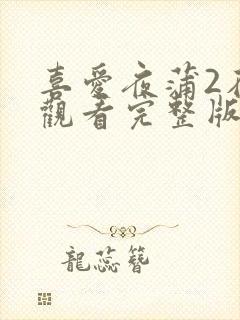 喜愛夜蒲2在
觀看完整版
龍蕊簪